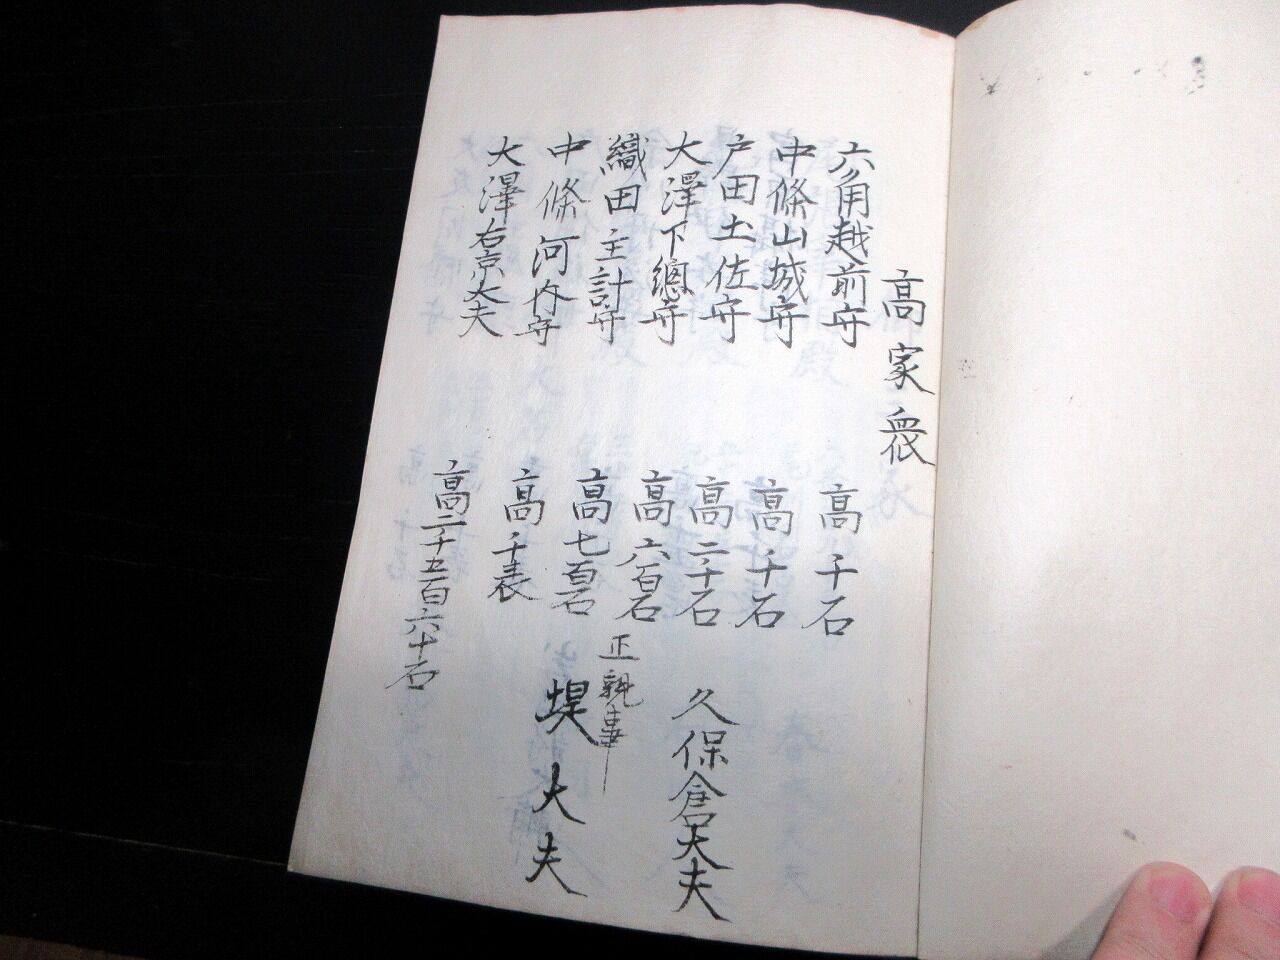 高家衆
六角越前守 高千石
中條山城守 高千石
戸田土佐守 高二千石 久保倉大夫
大澤下總守 高六百石
織田主計守 高七百石 正親事 堤大夫
中條河内守 高千表
大澤右京大夫 高二千五百六十石